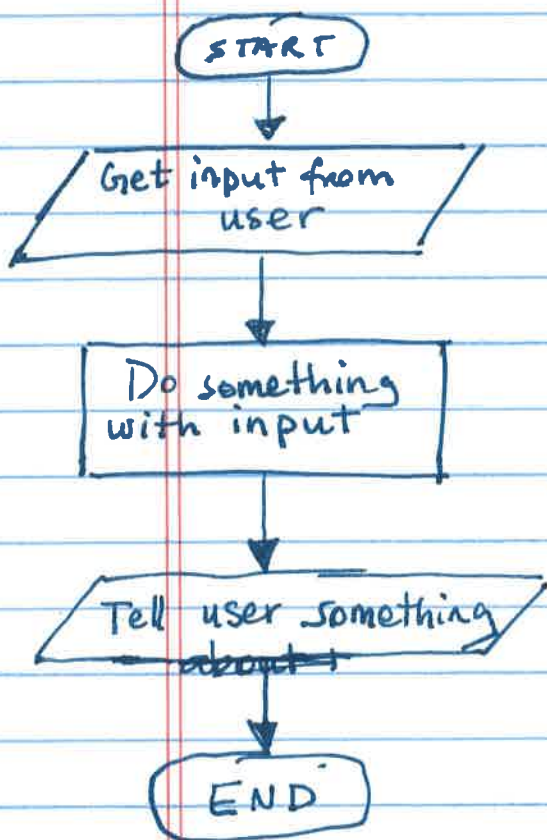 START
Get input from
user
Do something
with input
Tell user something
about
END